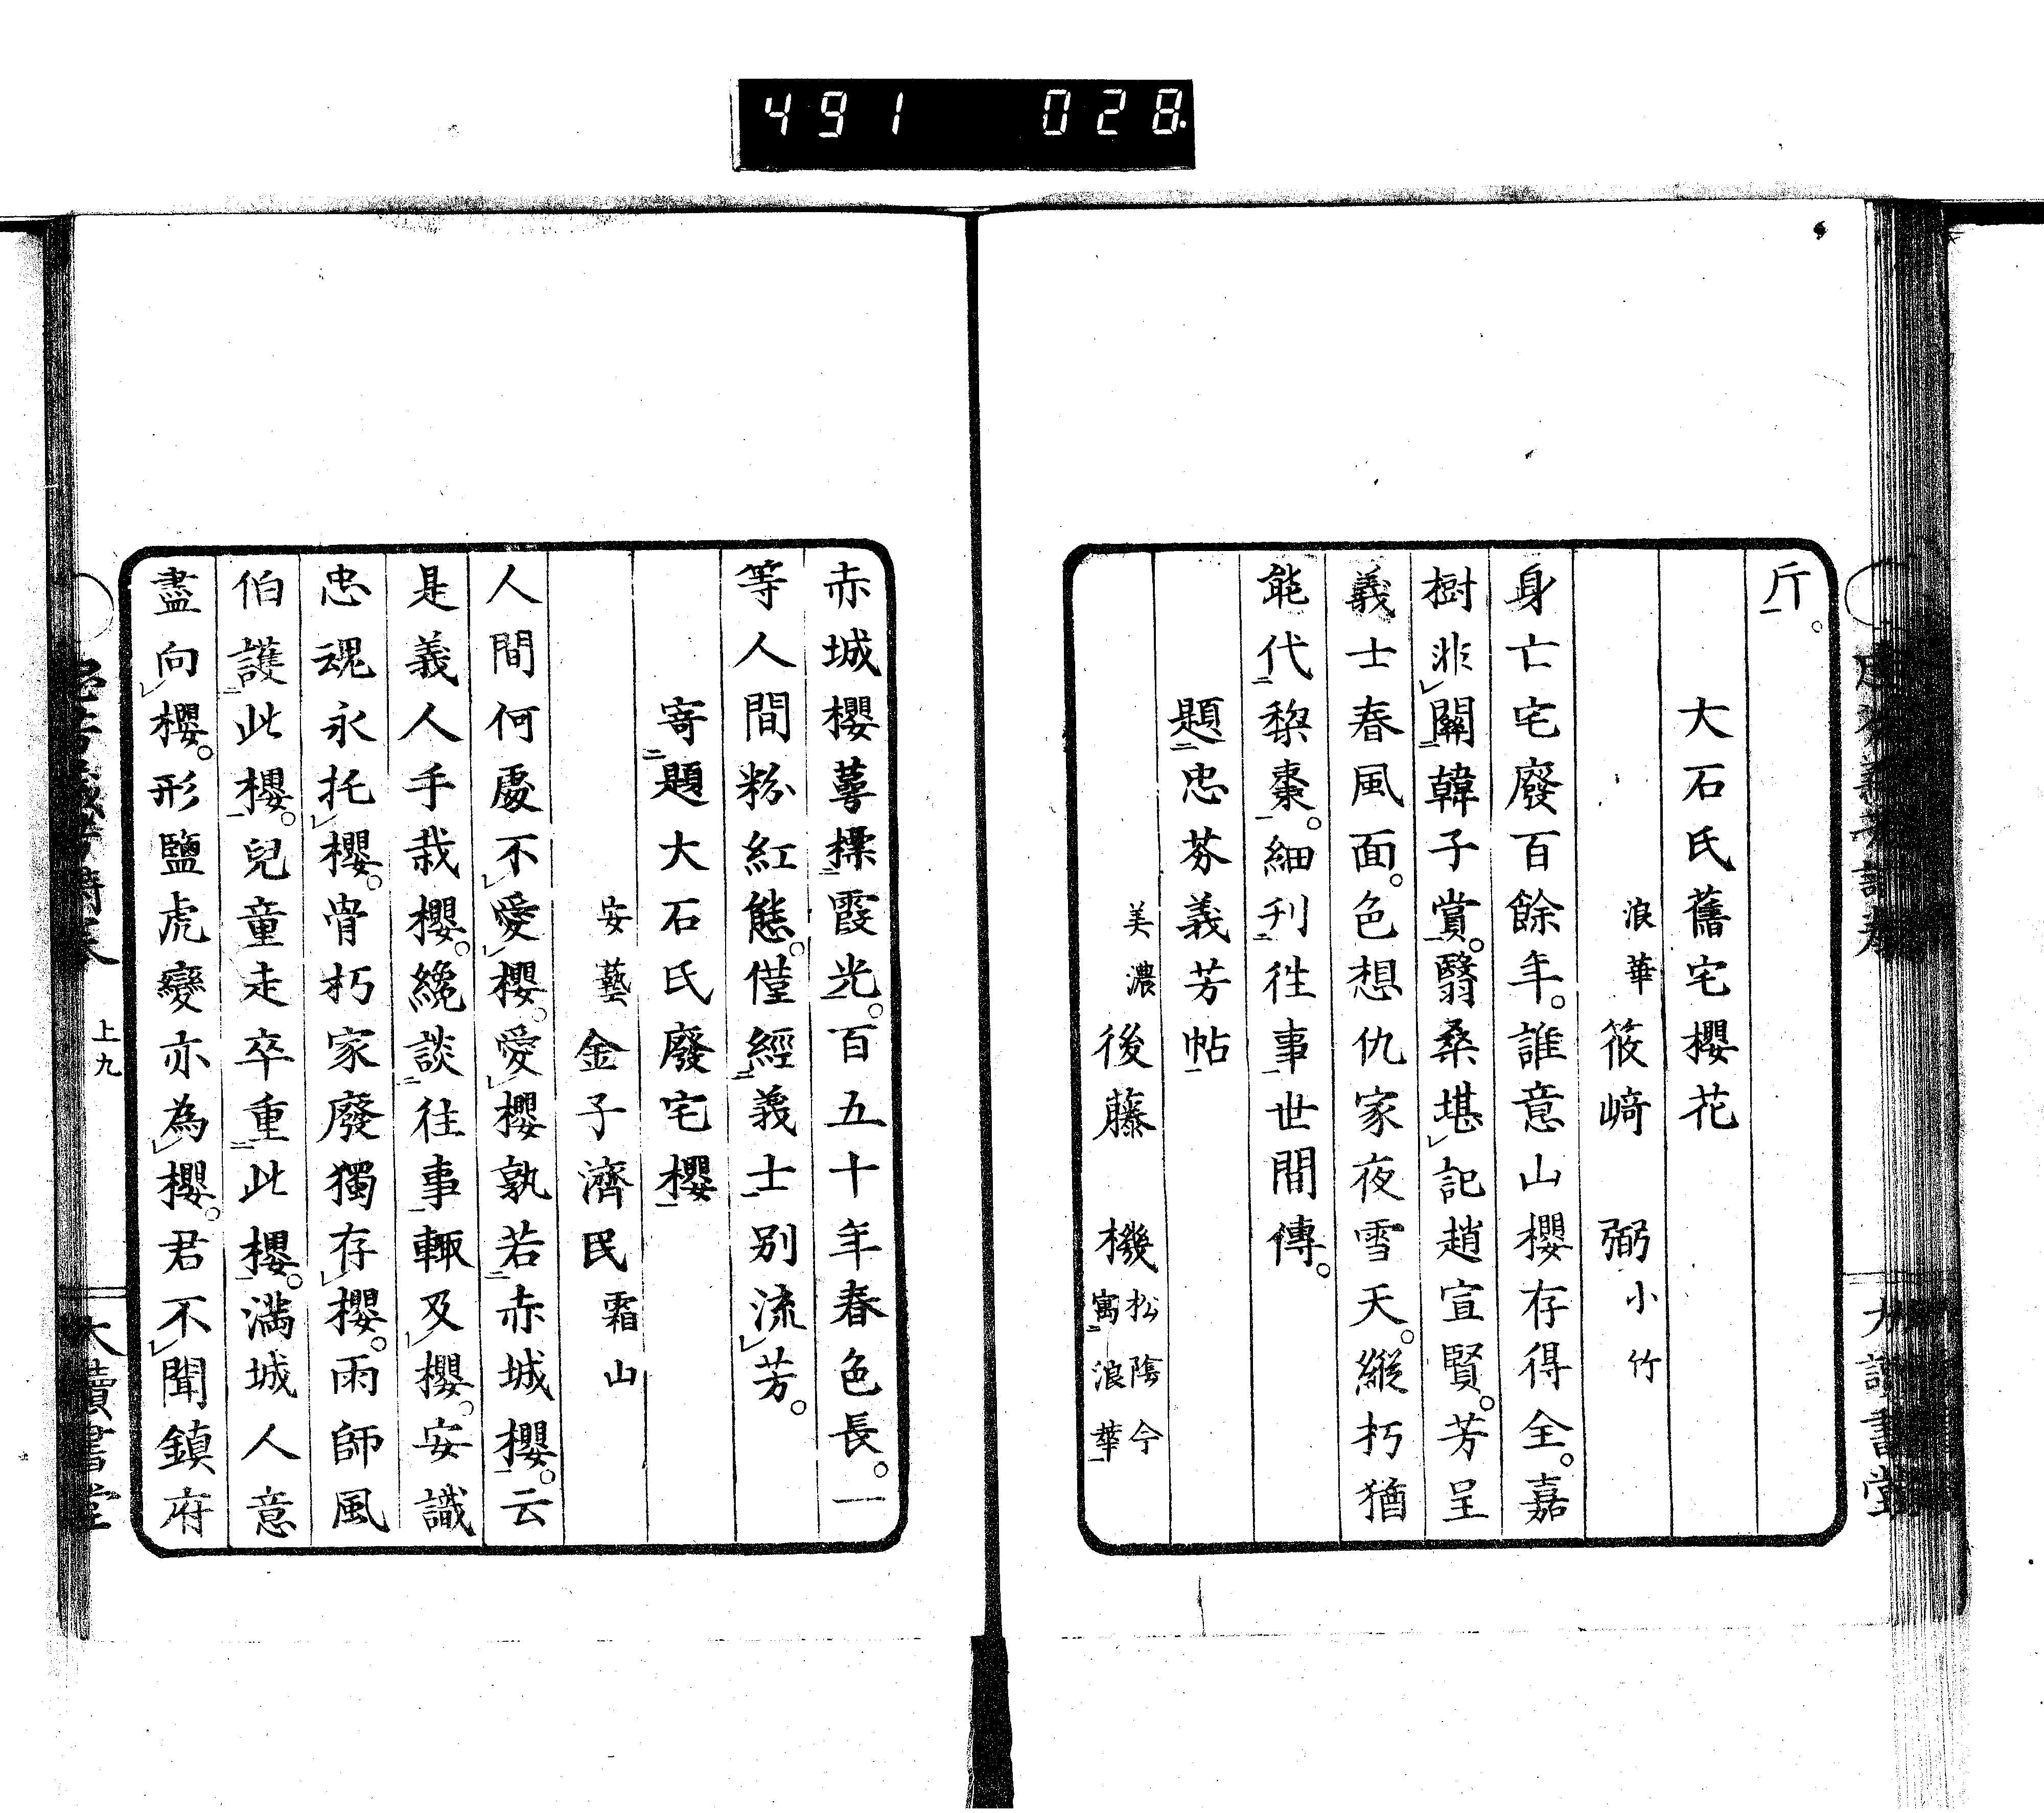 491 028
斤。
大石氏舊宅櫻花
浪華 筱﨑 弼 小竹
身亡宅廢百餘年。誰意山櫻存得全。嘉
樹非關韓子賞。翳桑堪記趙宣賢。芳呈
義士春風面。色想仇家夜雪天。縱朽猶
能代梨棗。細刊往事世間傳。
題忠芬義芳帖
美濃 後藤 機 松陰今
寓浪華
赤城櫻萼擽霞光。百五十年春色長。一
等人間粉紅態。僅經義士別流芳。
寄題大石氏廢宅櫻
安藝 金子濟民 霜山
人間何處不愛櫻。愛櫻孰若赤城櫻。云
是義人手栽櫻。纔談往事輙及櫻。安識
忠魂永托櫻。骨朽家廢獨存櫻。雨師風
伯護此櫻。兒童走卒重此櫻。滿城人意
盡向櫻。形鹽虎變亦為櫻。君不聞鎮府
上九
讀書堂